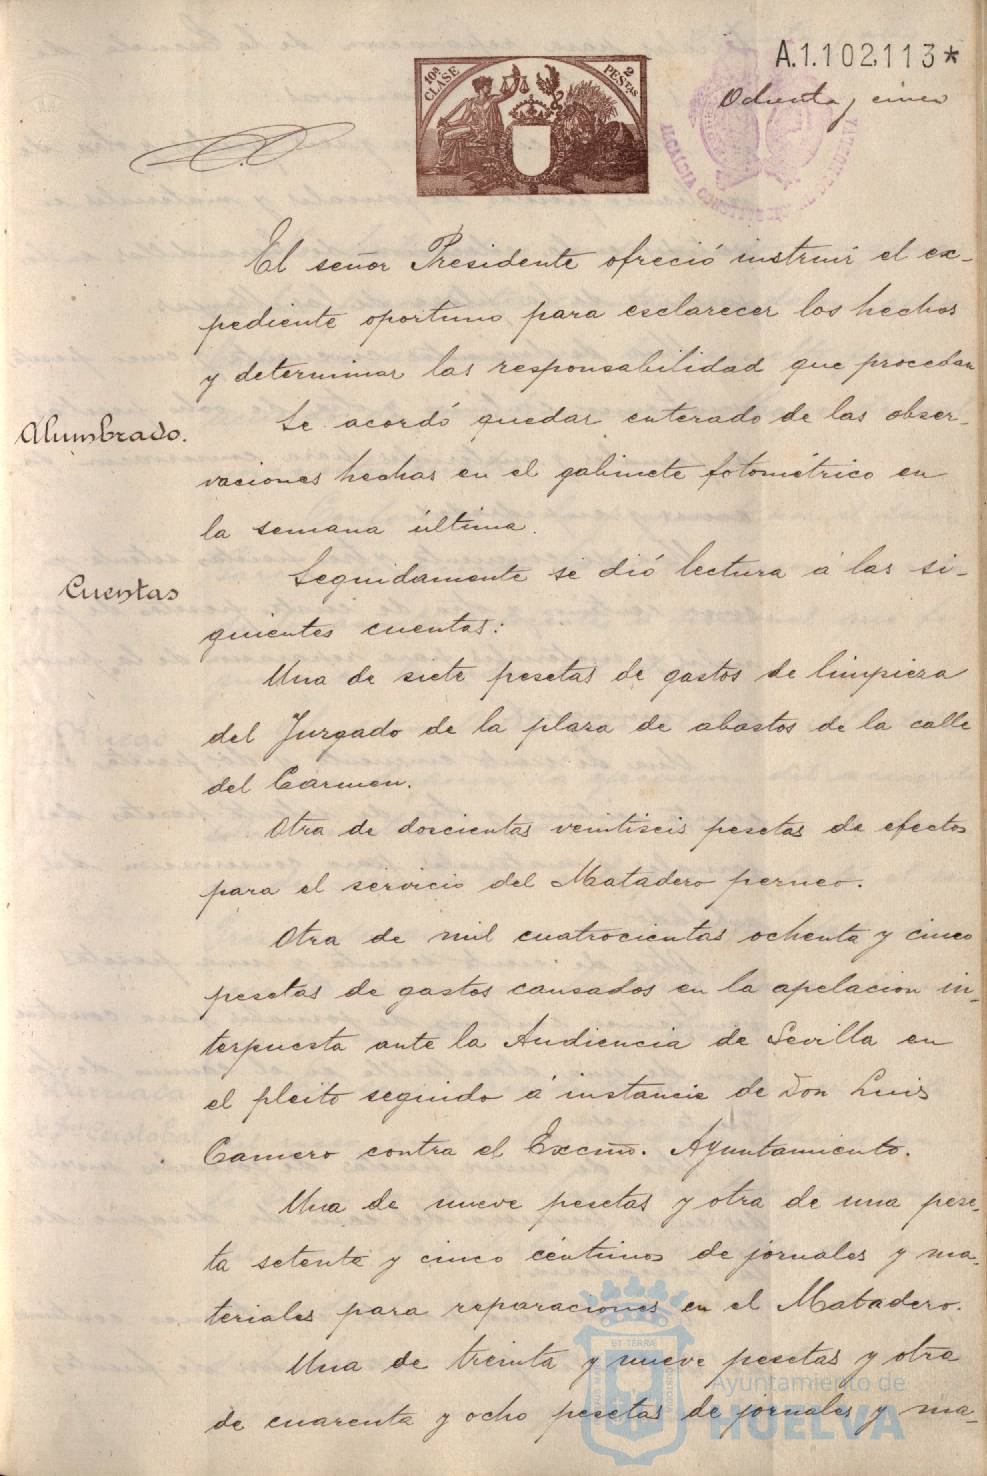 A.1.102,113*
10ª CLASE
2 PESTAS
Ochenta y cinco
ALCALDIA CONSTITUCIONAL DE HUELVA
El señor Presidente ofreció instruir el ex-
pediente oportuno para esclarecer los hechos
y determinar las responsabilidad que procedan
Alumbrado.
Se acordó quedar enterado de las obser-
vaciones hechas en el gabinete fotométrico en
la semana última.
Cuentas
Seguidamente se dió lectura á las si-
guientes cuentas:
Una de siete pesetas de gastos de limpieza
del Juzgado de la plaza de abastos de la calle
del Carmen.
Otra de doscientas veintiseis pesetas de efectos
para el servicio del Matadero perneo.
Otra de mil cuatrocientas ochenta y cinco
pesetas de gastos causados en la apelacion in-
terpuesta ante la Audiencia de Sevilla en
el pleito seguido á instancia de Don Luis
Camero contra el Excmo. Ayuntamiento.
Una de nueve pesetas y otra de una pese-
ta setenta y cinco céntimos de jornales y ma-
teriales para reparaciones en el Matadero.
Una de treinta y nueve pesetas y otra
de cuarenta y ocho pesetas de jornales y ma-
Ayuntamiento de
HUELVA